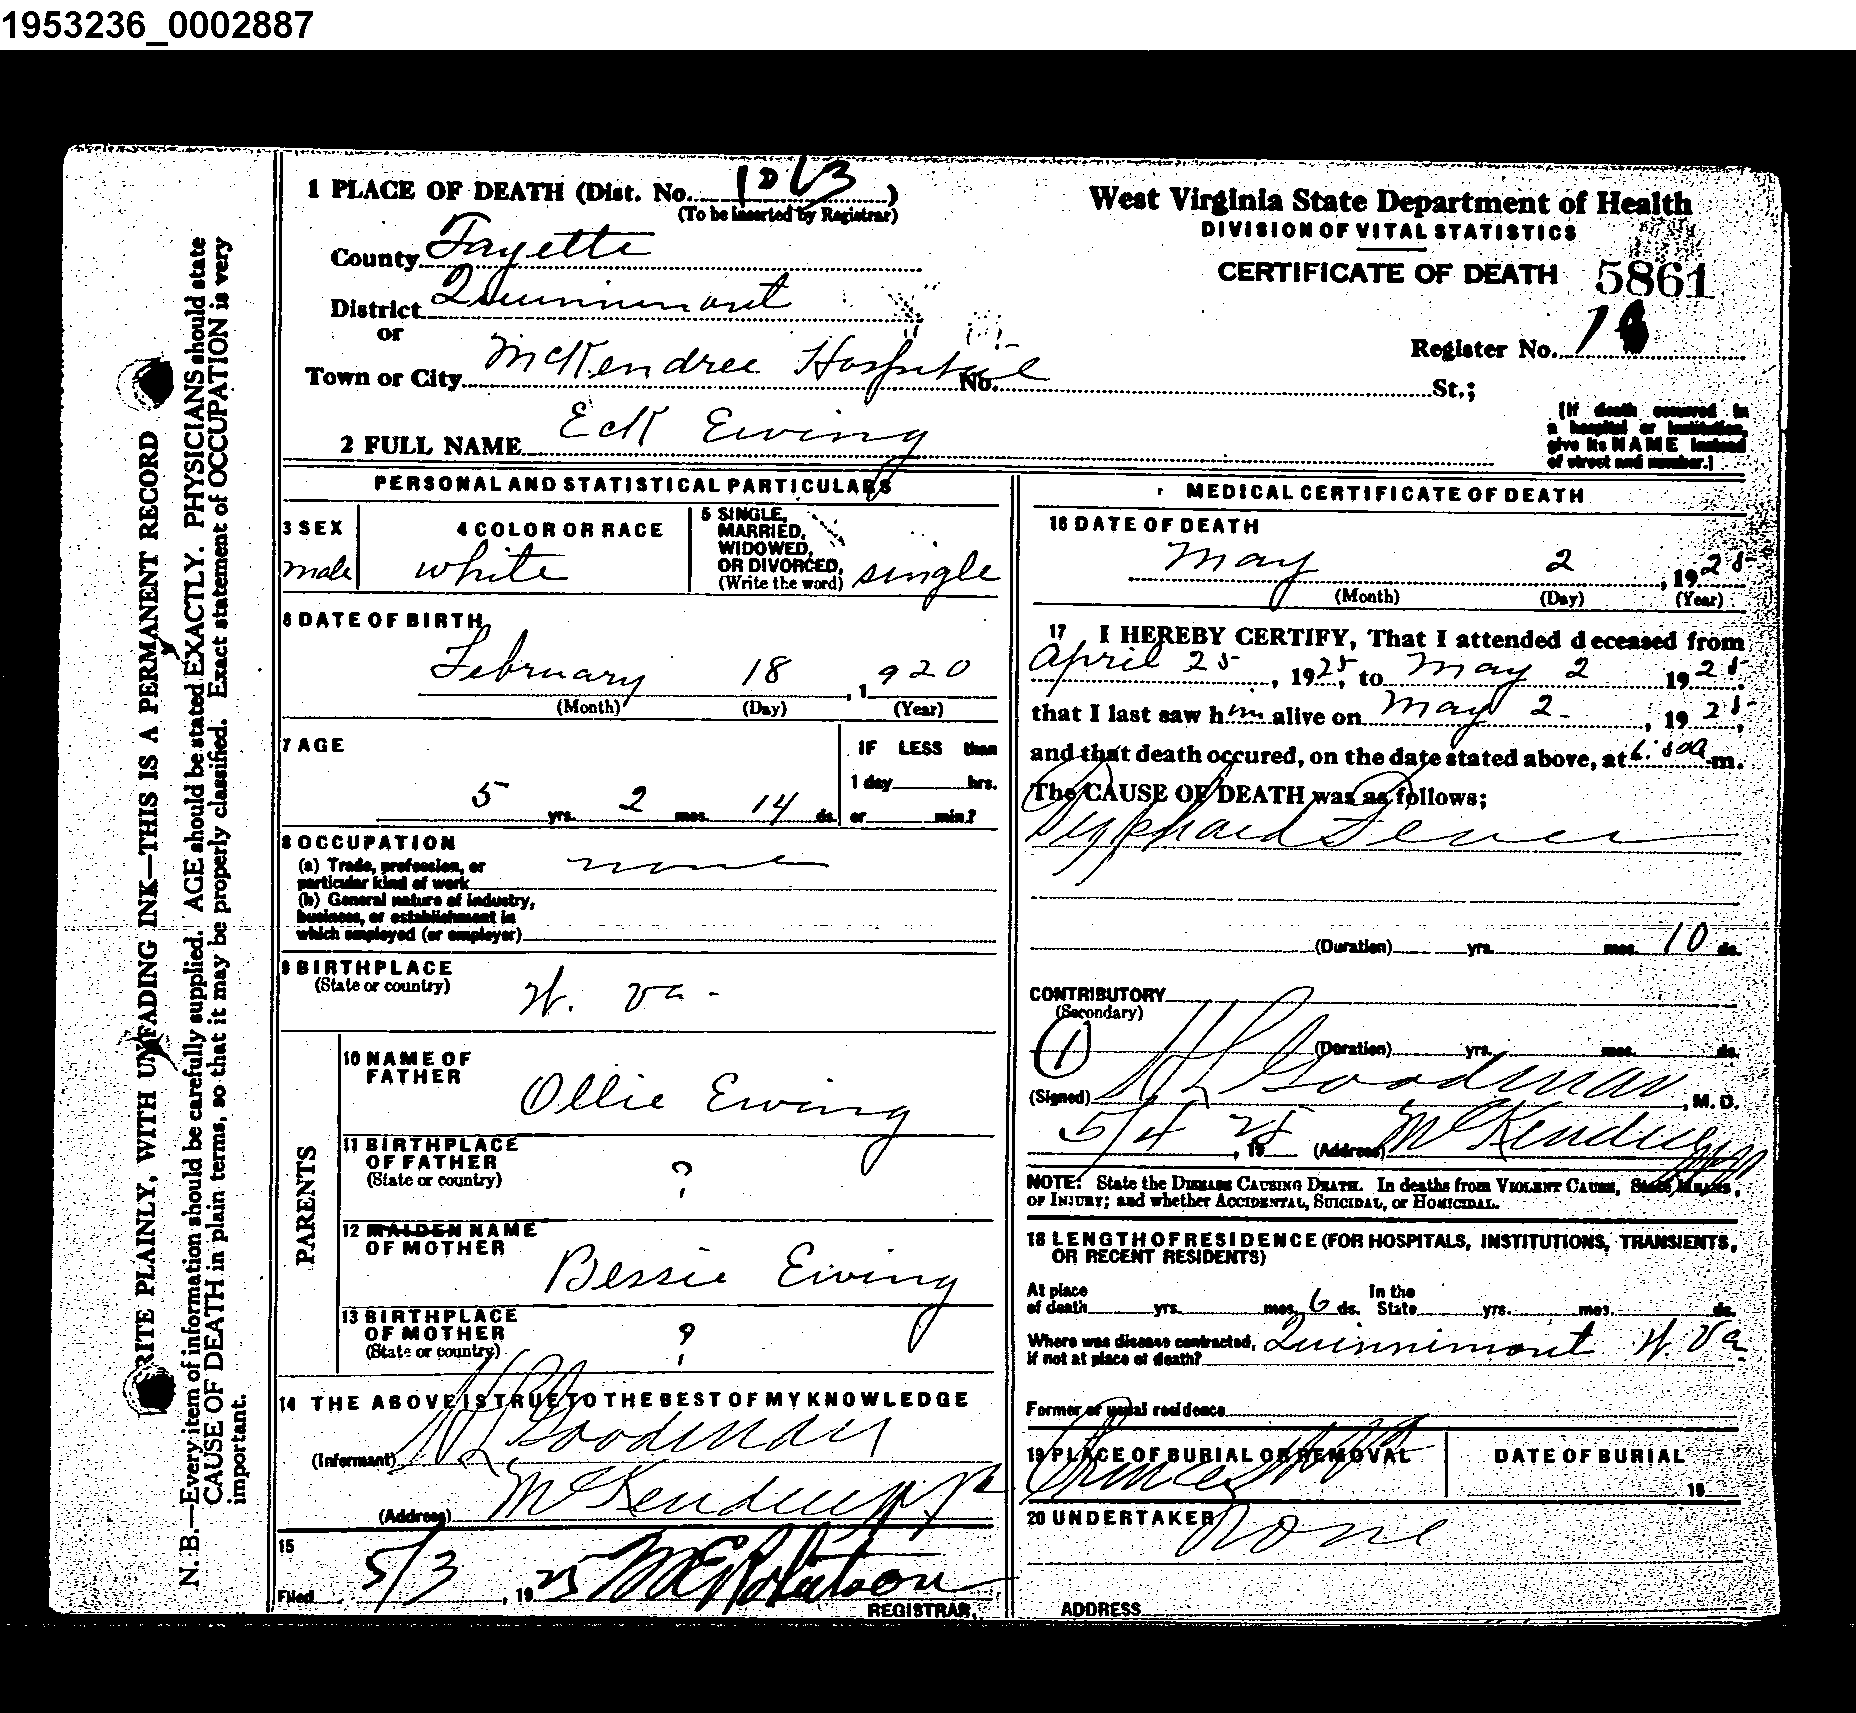 1953236_0002887
1 PLACE OF DEATH (Dist. No. 1013)
(To be inserted by Registrar)
County Fayette
District Quinnimont
or
Town or City McKendree Hospital No. St.;
2 FULL NAME Eck Ewing
West Virginia State Department of Health
DIVISION OF VITAL STATISTICS
CERTIFICATE OF DEATH 5861
Register No.
[If death occurred in
a hospital or institution,
give its NAME instead
of street and number.]
PERSONAL AND STATISTICAL PARTICULARS
3 SEX
male
4 COLOR OR RACE
white
5 SINGLE,
MARRIED,
WIDOWED,
OR DIVORCED,
(Write the word) single
6 DATE OF BIRTH
February 18, 1920
(Month) (Day) (Year)
7 AGE
5 yrs. 2 mos. 14 ds.
IF LESS than
1 day hrs.
or min.?
8 OCCUPATION
(a) Trade, profession, or
particular kind of work none
(b) General nature of industry,
business, or establishment in
which employed (or employer)
9 BIRTHPLACE
(State or country) W. Va.
PARENTS
10 NAME OF
FATHER Ollie Ewing
11 BIRTHPLACE
OF FATHER
(State or country) ?
12 MAIDEN NAME
OF MOTHER Bessie Ewing
13 BIRTHPLACE
OF MOTHER
(State or country) ?
14 THE ABOVE IS TRUE TO THE BEST OF MY KNOWLEDGE
(Informant) H L Goodman
(Address) McKendree W Va
15
Filed 5/3, 1925 M E Robertson
REGISTRAR.
MEDICAL CERTIFICATE OF DEATH
16 DATE OF DEATH
May 2, 1925
(Month) (Day) (Year)
17 I HEREBY CERTIFY, That I attended deceased from
April 25, 1925, to May 2 1925.
that I last saw him alive on May 2, 1925,
and that death occured, on the date stated above, at m.
The CAUSE OF DEATH was as follows;
Typhoid Fever
(Duration) yrs. mos. 10 ds.
CONTRIBUTORY
(Secondary)
1
(Duration) yrs. mos. ds.
(Signed) H L Goodman, M. D.
5/4 25, 19 (Address) McKendree W Va
NOTE: State the DISEASE CAUSING DEATH. In deaths from VIOLENT CAUSE, State MEANS,
OF INJURY; and whether ACCIDENTAL, SUICIDAL, or HOMICIDAL.
18 LENGTH OF RESIDENCE (FOR HOSPITALS, INSTITUTIONS, TRANSIENTS,
OR RECENT RESIDENTS)
At place
of death yrs. mos. 6 ds.
In the
State yrs. mos. ds.
Where was disease contracted, Quinnimont W. Va.
if not at place of death?
Former or usual residence
19 PLACE OF BURIAL OR REMOVAL
DATE OF BURIAL
19
20 UNDERTAKER None
ADDRESS
WRITE PLAINLY, WITH UNFADING INK—THIS IS A PERMANENT RECORD
N. B.—Every item of information should be carefully supplied. AGE should be stated EXACTLY. PHYSICIANS should state
CAUSE OF DEATH in plain terms, so that it may be properly classified. Exact statement of OCCUPATION is very
important.